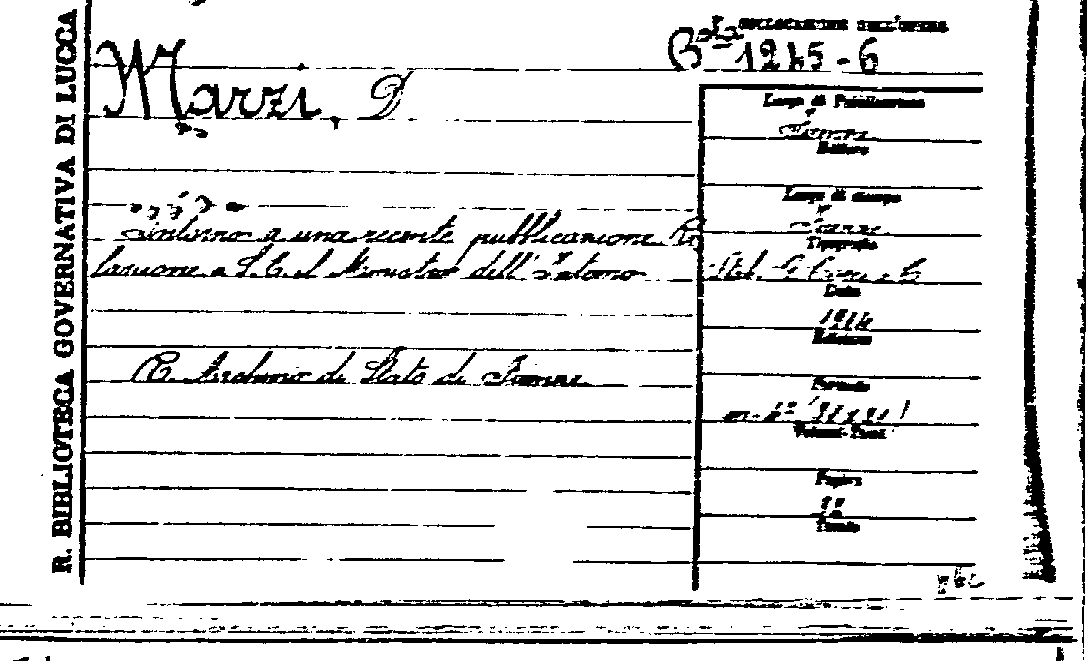 R. BIBLIOTECA GOVERNATIVA DI LUCCA
COLLOCAZIONE DELL'OPERA
Bta 1245-6
Marzi, D
Luogo di Pubblicazione
Firenze
Editore
Luogo di stampa
Firenze
Tipografia
Intorno a una recente pubblicazione Re
lazione a S. E. il Ministro dell'Interno
Data
1914
Edizione
R. Archivio di Stato di Firenze
Formato
Volumi-Tomi
Pagine
Tavole